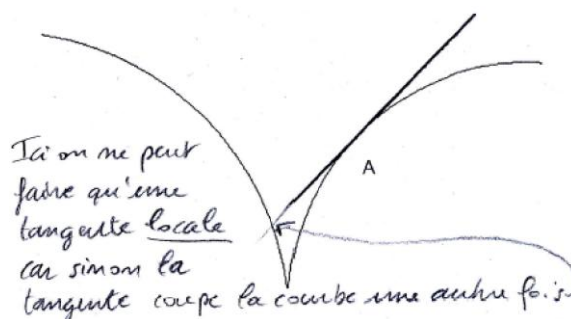 A
Ici on ne peut
faire qu'une
tangente locale
car sinon la
tangente coupe la courbe une autre fois